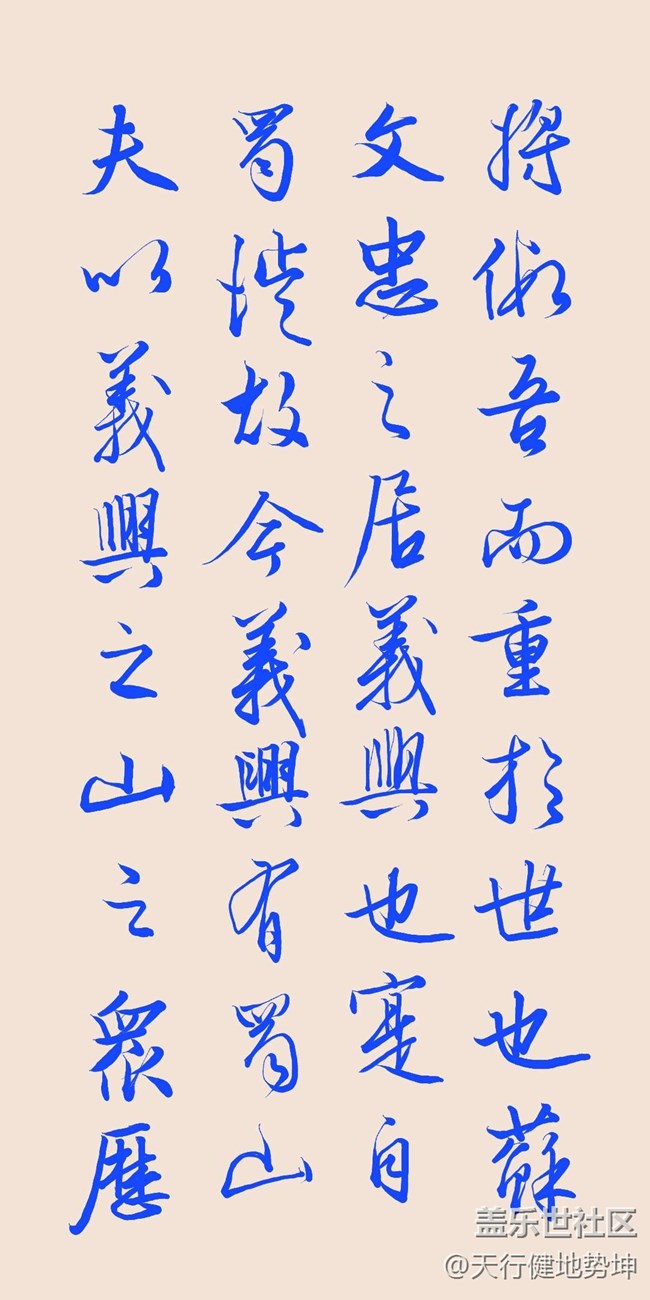 將假吾而重於世也蘇
文忠之居義興也寔自
蜀徙故今義興有蜀山
夫以義興之山之眾歷
盖乐世社区
@天行健地势坤